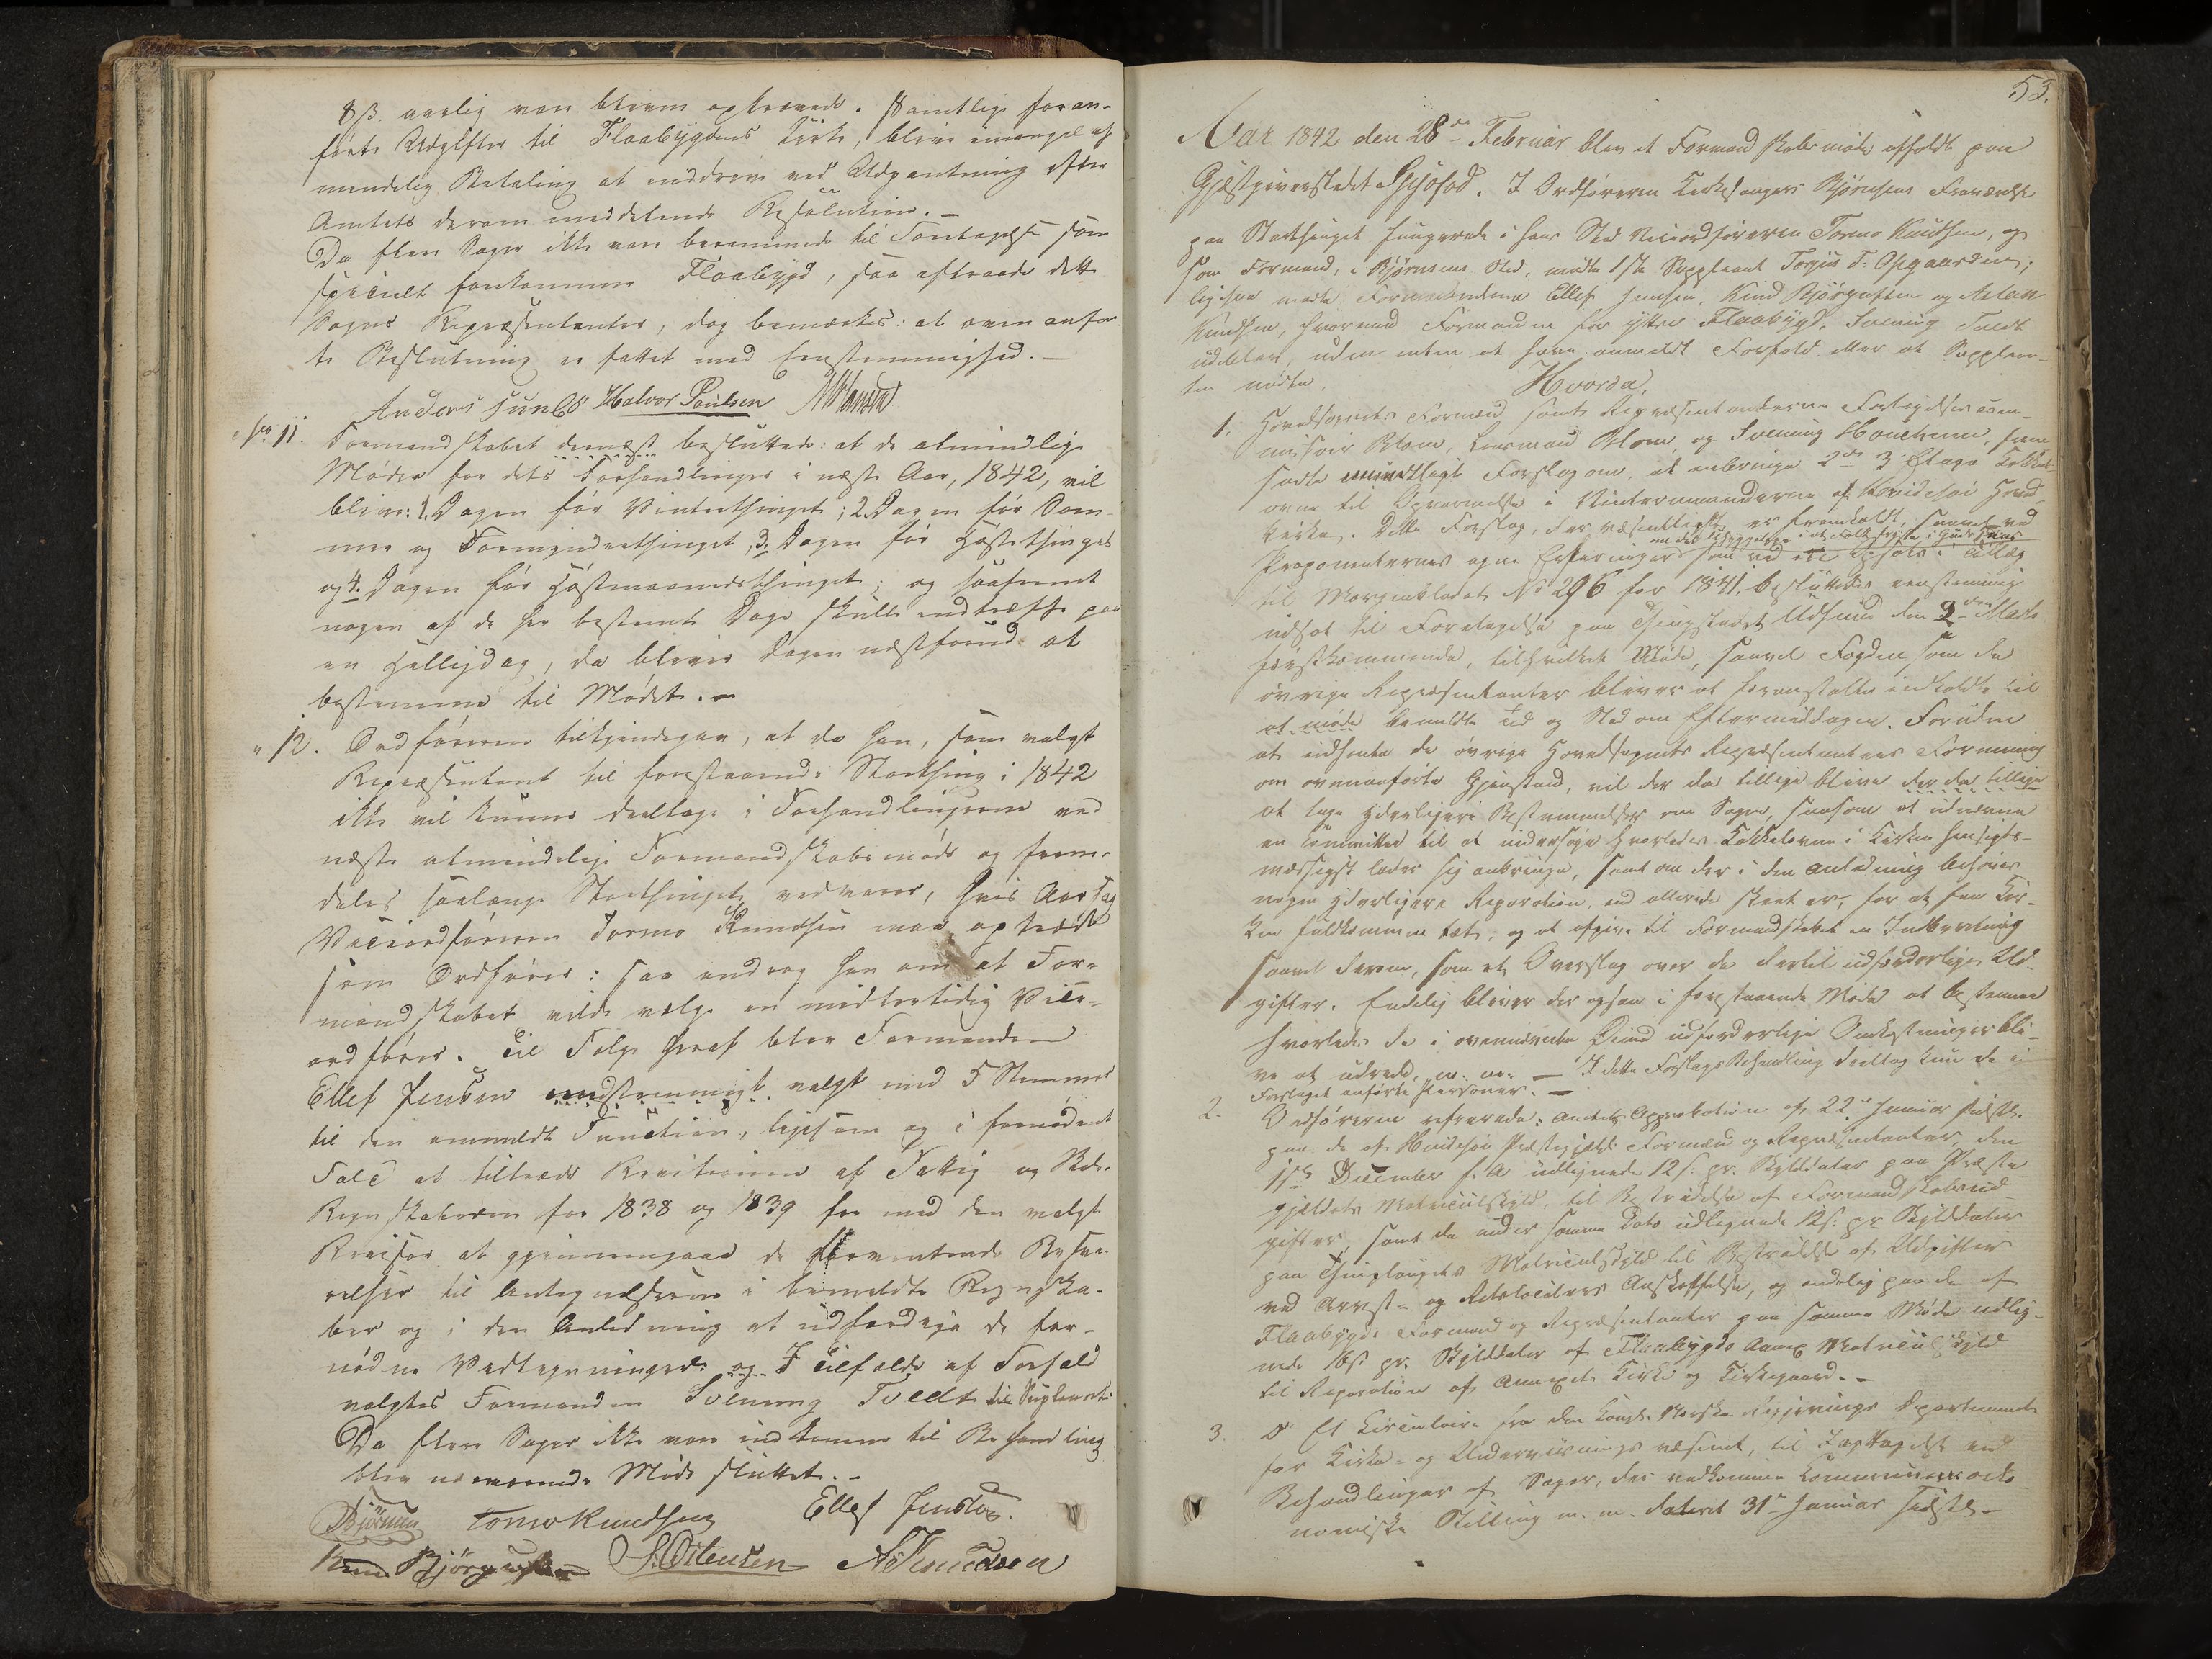 8 ß. aarlig vare bleven optrævede. Samtlige foran-
førte Udgifter til Flaabygdens Kirke, blive i mangel af
mindelig Betaling at inddrive ved Udpantning efter
Amtets derom meddelende Resolution. —
Da flere Sager ikke vare berammede til Foretagelse som
specielt forekommer Flaabygd, saa aftraadte dette
Sogns Repræsentanter, dog bemærkes: at ovenanfør-
te Beslutning er fattet med Eenstemmighed. —
Halvor Poulsen
No 11. Formandskabet dernæst besluttede: at de almindelige
Møder for dets Forhandlinger i næste Aar, 1842, vil
blive: 1. Dagen før Vinterthinget; 2. Dagen før Som-
mer og Formynderthinget, 3. Dagen før Høstethinget
og 4. Dagen før Høstmaanedsthinget; og saafremt
nogen af de her bestemte Dage skulle indtræffe paa
en Helligdag, da bliver Dagen næstforud at
bestemme til Mødet. —
" 12. Ordføreren tilkjendegav, at da han, som valgt
Repræsentant til forestaaende Storthing i 1842
ikke vil kunne deeltage i Forhandlingerne ved
næste almindelige Formandskabsmøde og frem-
deles saalænge Storthinget vedvarer, hvis Aarsag
Viceordføreren Tormo Knudsen maa optræde
som Ordfører: saa androg han om at For-
mandskabet vilde vælge en midlertidig Vice-
ordfører. Til Følge heraf blev Formanden
Ellef Jensen eenstemmigt valgt med 5 Stemmer
til den anmeldte Function, ligesom og i fornødent
Fald at tiltræde Revisionen af Fattig og Skole-
Regnskaberne for 1838 og 1839 for med den valgte
Revisor at gjennemgaae de forventende Besva-
relser til Antegnelserne i bemeldte Regnska-
ber og i den Anledning at udfærdige de for-
nødne Vedtegninger. og I Tilfælde af Forfald
valgtes Formanden Svenung Tveedt til Supleant.
Da flere Sager ikke vare indkomne til Behandling
blev nærværende Møde sluttet. —
Björnsen Tormo Knudsen Ellef Jensen.
Knud Björgufsen S. Ostensen A Knudsen
53.
Aar 1842 den 28de Februar blev et Formandskabsmøde afholdt paa
Gjæstgiverstedet. I Ordføreren Kirkesanger Bjørnsens Fraværelse
paa Storthinget fungerede i hans Sted Viceordføreren Tormo Knudsen, og
som Formand, i Bjørnsens Sted, mødte 1ste Suppleant;
ligesaa mødte Formændene Ellef Jensen, Knud Bjørgufsen og Aslak
Knudsen, hvorimod Formanden for ytter Flaabygd, Svenung Tvedt
udeblev, uden enten at have anmeldt Forfald eller at Supplean-
ten mødte.
Hvorda,
1. Hovedsognets Formænd samt Repræsentanterne Forligelsescom-
misair Blom, Lensmand Blom, og Svenung, frem-
satte Forslag om, at anbringe 2de 3 Etages Kakkel-
ovne til Opvarmelse i Vintermaanederne af Hvideseid Hoved-
kirke. Dette Forslag, der væsentligst er fremkaldt, saavel ved
Proponenternes egne Erfaringer som ved en Opsats i Tillæg
til Morgenbladet No 296 for 1841. besluttedes eenstemmig
udsat til Foretagelse paa Thingstedet den 9de Marts
førstkommende, tilhvilket Møde, saavel Fogden som de
øvrige Repræsentanter bliver at foranstalte indkaldte til
at møde bemeldte Tid og Sted om Eftermiddagen. Foruden
at indhente de øvrige Hovedsognets Repræsentanters Formening
om ovenanførte Gjenstand, vil der da tillige blive der da tillige
at tage yderligere Bestemmelser om Sagen, saasom at udnævne
en Committee til at undersøge hvorledes Kakkelovne i Kirken hensigts-
mæssigst lader sig anbringe, samt om der i den Anledning behøves
nogen yderligere Reparation, end allerede skeet er, for at faae Kir-
ken fuldkommen tæt; og at afgive til Formandskabet en Indberetning
saavel derom, som et Overslag over de dertil udfordrelige Ud-
gifter. Endelig bliver der ogsaa i forestaaende Møde at bestemme
hvorledes de i ovennævnte Øiemed udfordrelige Omkostninger bli-
ve at udrede, m. m. — I dette Forslags Behandling deeltog kun de i
Forslaget anførte Personer. —
2. Ordføreren refererede: Amtets Approbation af 22de Januar sidstl.
paa de af Hvideseid Præstegjelds Formænd og Repræsentanter den
1ste December f. A. udlignede 12 ß. pr. Skylddaler paa Præste-
gjeldets Matriculskyld, til Bestridelse af Formandskabsud-
gifter, samt de under samme Dato udlignede 12 ß. pr Skylddaler
paa Thinglaugets Matriculskyld til Bestridelse af Udgifter
ved Arrest- og Retslocalers Anskaffelse, og endelig paa de af
Flaabygds Formænd og Repræsentanter paa samme Møde udlig-
nede 16 ß pr. Skylddaler af Flaabygds Annex Matriculskyld
til Reparation af Annexets Kirke og Kirkegaard. —
3. Et Circulaire fra den Kongl. Norske Regjerings Departement
for Kirke- og Underviisningsvæsenet, til Iagttagelse ved
Behandlinger af Sager, der vedkomme Communernes oeko-
nomiske Stilling m. m. dateret 31te Januar sidstl. —